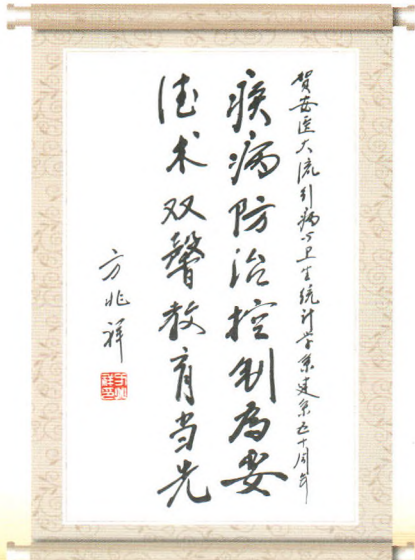 贺安医大流行病与卫生统计学系建系五十周年
疾病防治控制为要
德术双馨教育当先
方兆祥